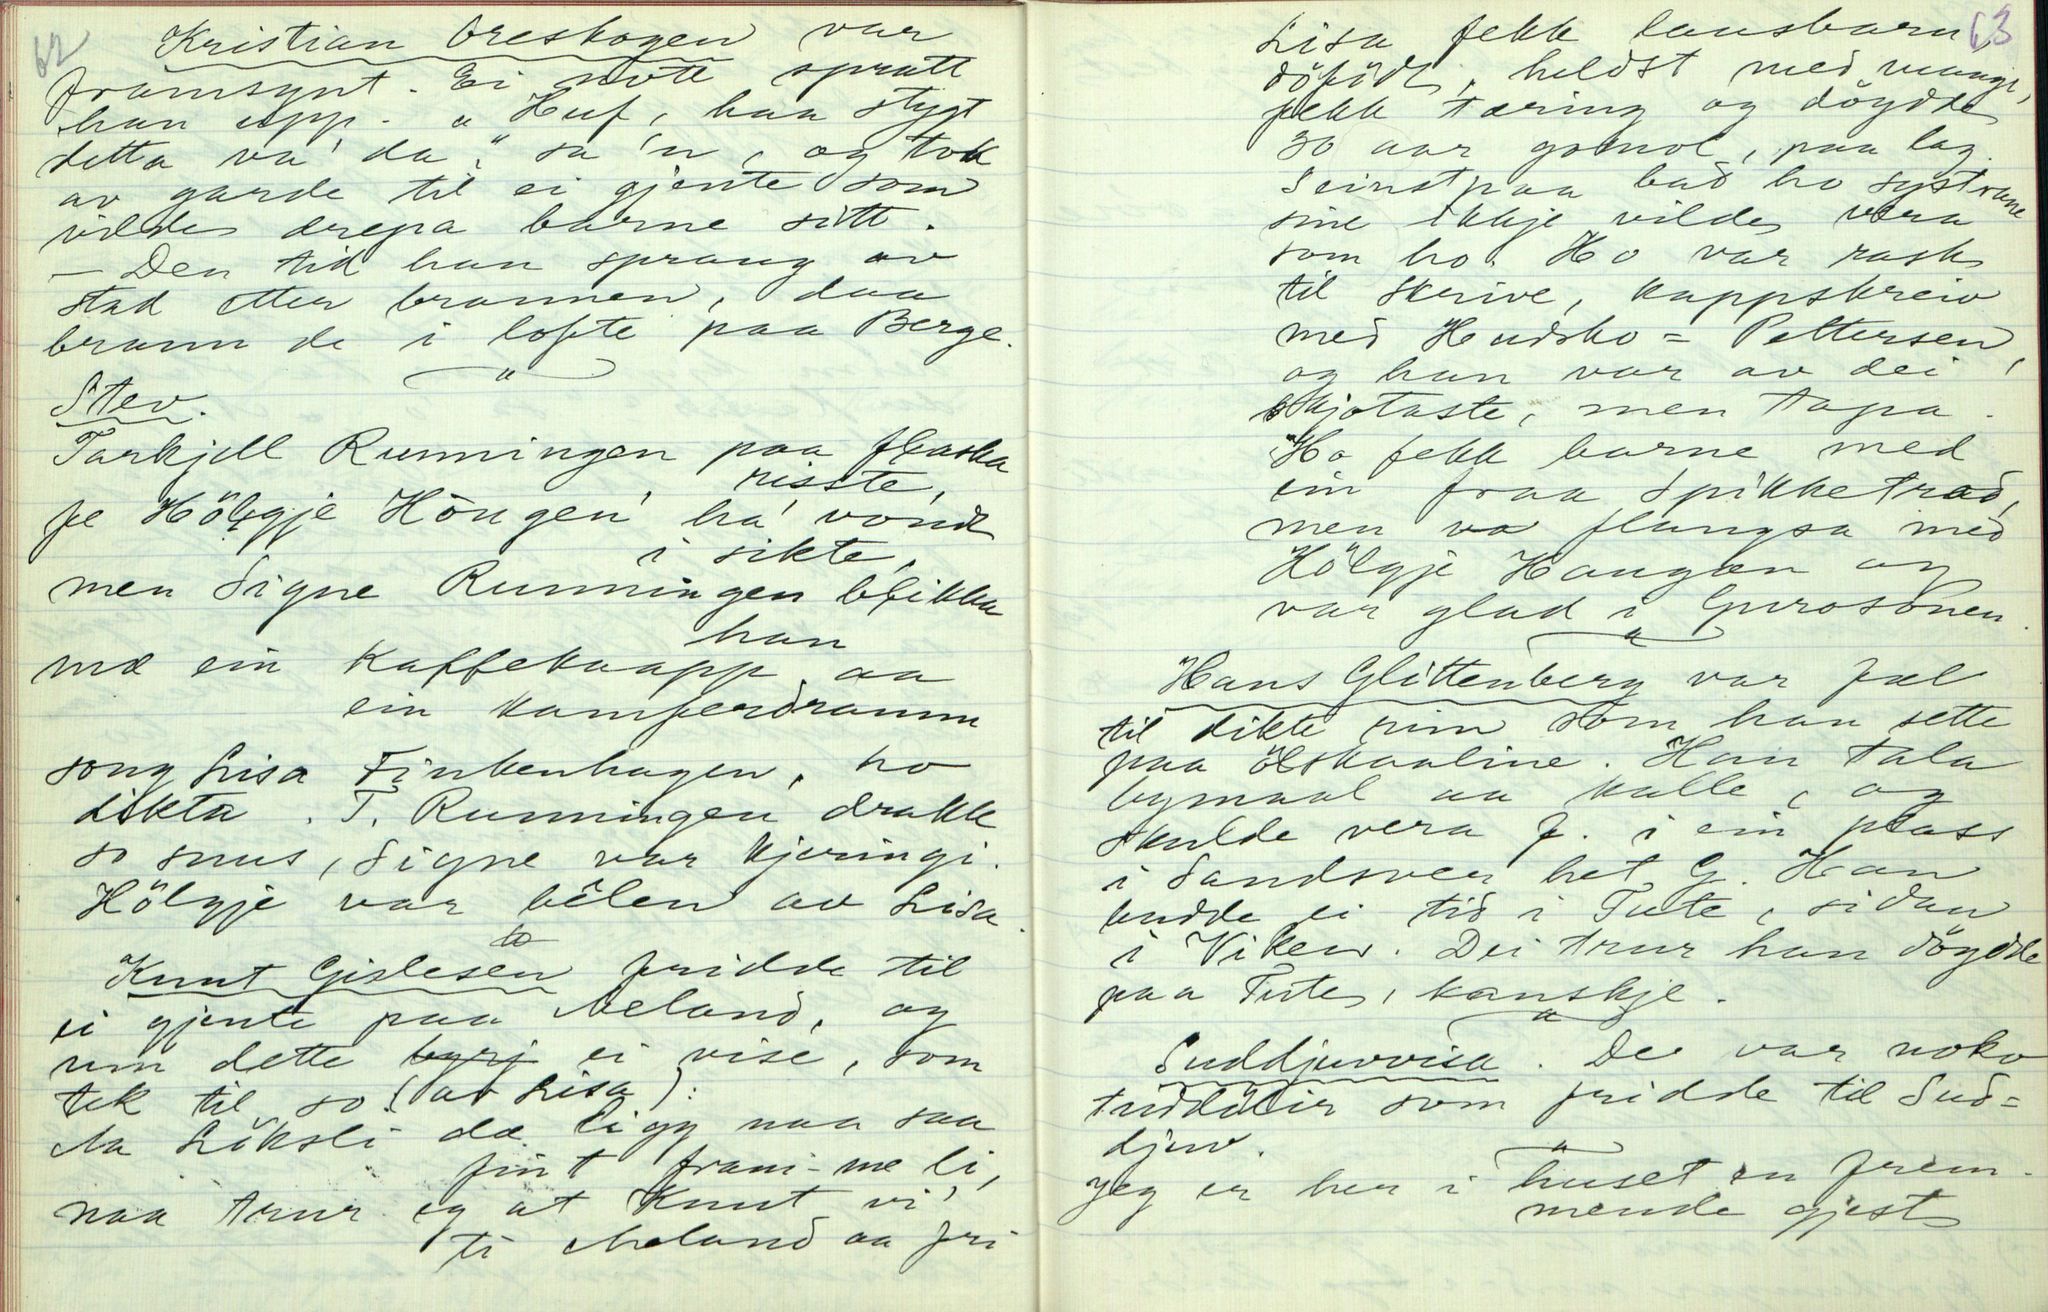 62
Kristian Oreskogen var
framsynt. Ei nott spratt
han upp. "Huf, haa stygt
detta va' da", sa 'n, og tok
av garde til ei gjente som
vilde drepa barne sitt.
- Den tid han sprang av
stad etter brannen, daa
brann de i lofte paa Berge.
"
Stev.
Tarkjell Runningen paa flaska
risste,
fe Hölgje Höugen ha' vondt
i sikte,
men Signe Runningen blikka
han
me ein kaffeknapp aa
ein kamferdramm
song Lisa Finkenhagen, ho
dikta. T. Runningen drakk
so snus, Signe var kjeringi.
Hölgje var belen av Lisa.
Knut Gislesen fridde til
ei gjente paa Meland, og
um dette byrj ei vise, som
tek til so (av Lisa):
Aa Löksli dæ ligg naa saa
fint frami me li,
naa trur eg at Knut vi'
ti Meland aa fri
63
Lisa fekk lausbarn,
döfödt, heldst med mange,
fekk tæring og döydde
30 aar gomol, paa lag.
Seinst paa bad ho systrane
sine ikkje vilde vera
som ho. Ho var rask
til skrive, kappskreiv
med Hudsko=Pettersen,
og han var av dei
skjotaste, men tapa.
Ho fekk barne med
ein fraa Spikketrad,
men va flangsa med
Hölgje Haugen og
var glad i Gurosonen.
"
Hans Glittenberg var fæl
til dikte rim som han sette
paa ölskaaline. Han tala
bymaal aa kalle, og
skulde vera f. i ein plass
i Sandsver het G. Han
budde ei tid i Tute, sidan
i Viken. Dei trur han döydde
paa Tute, kanskje.
"
Suddjuvvisa. De var noko
som fridde til Sud=
djuv.
"
Jeg er her i huset en frem-
mende gjest